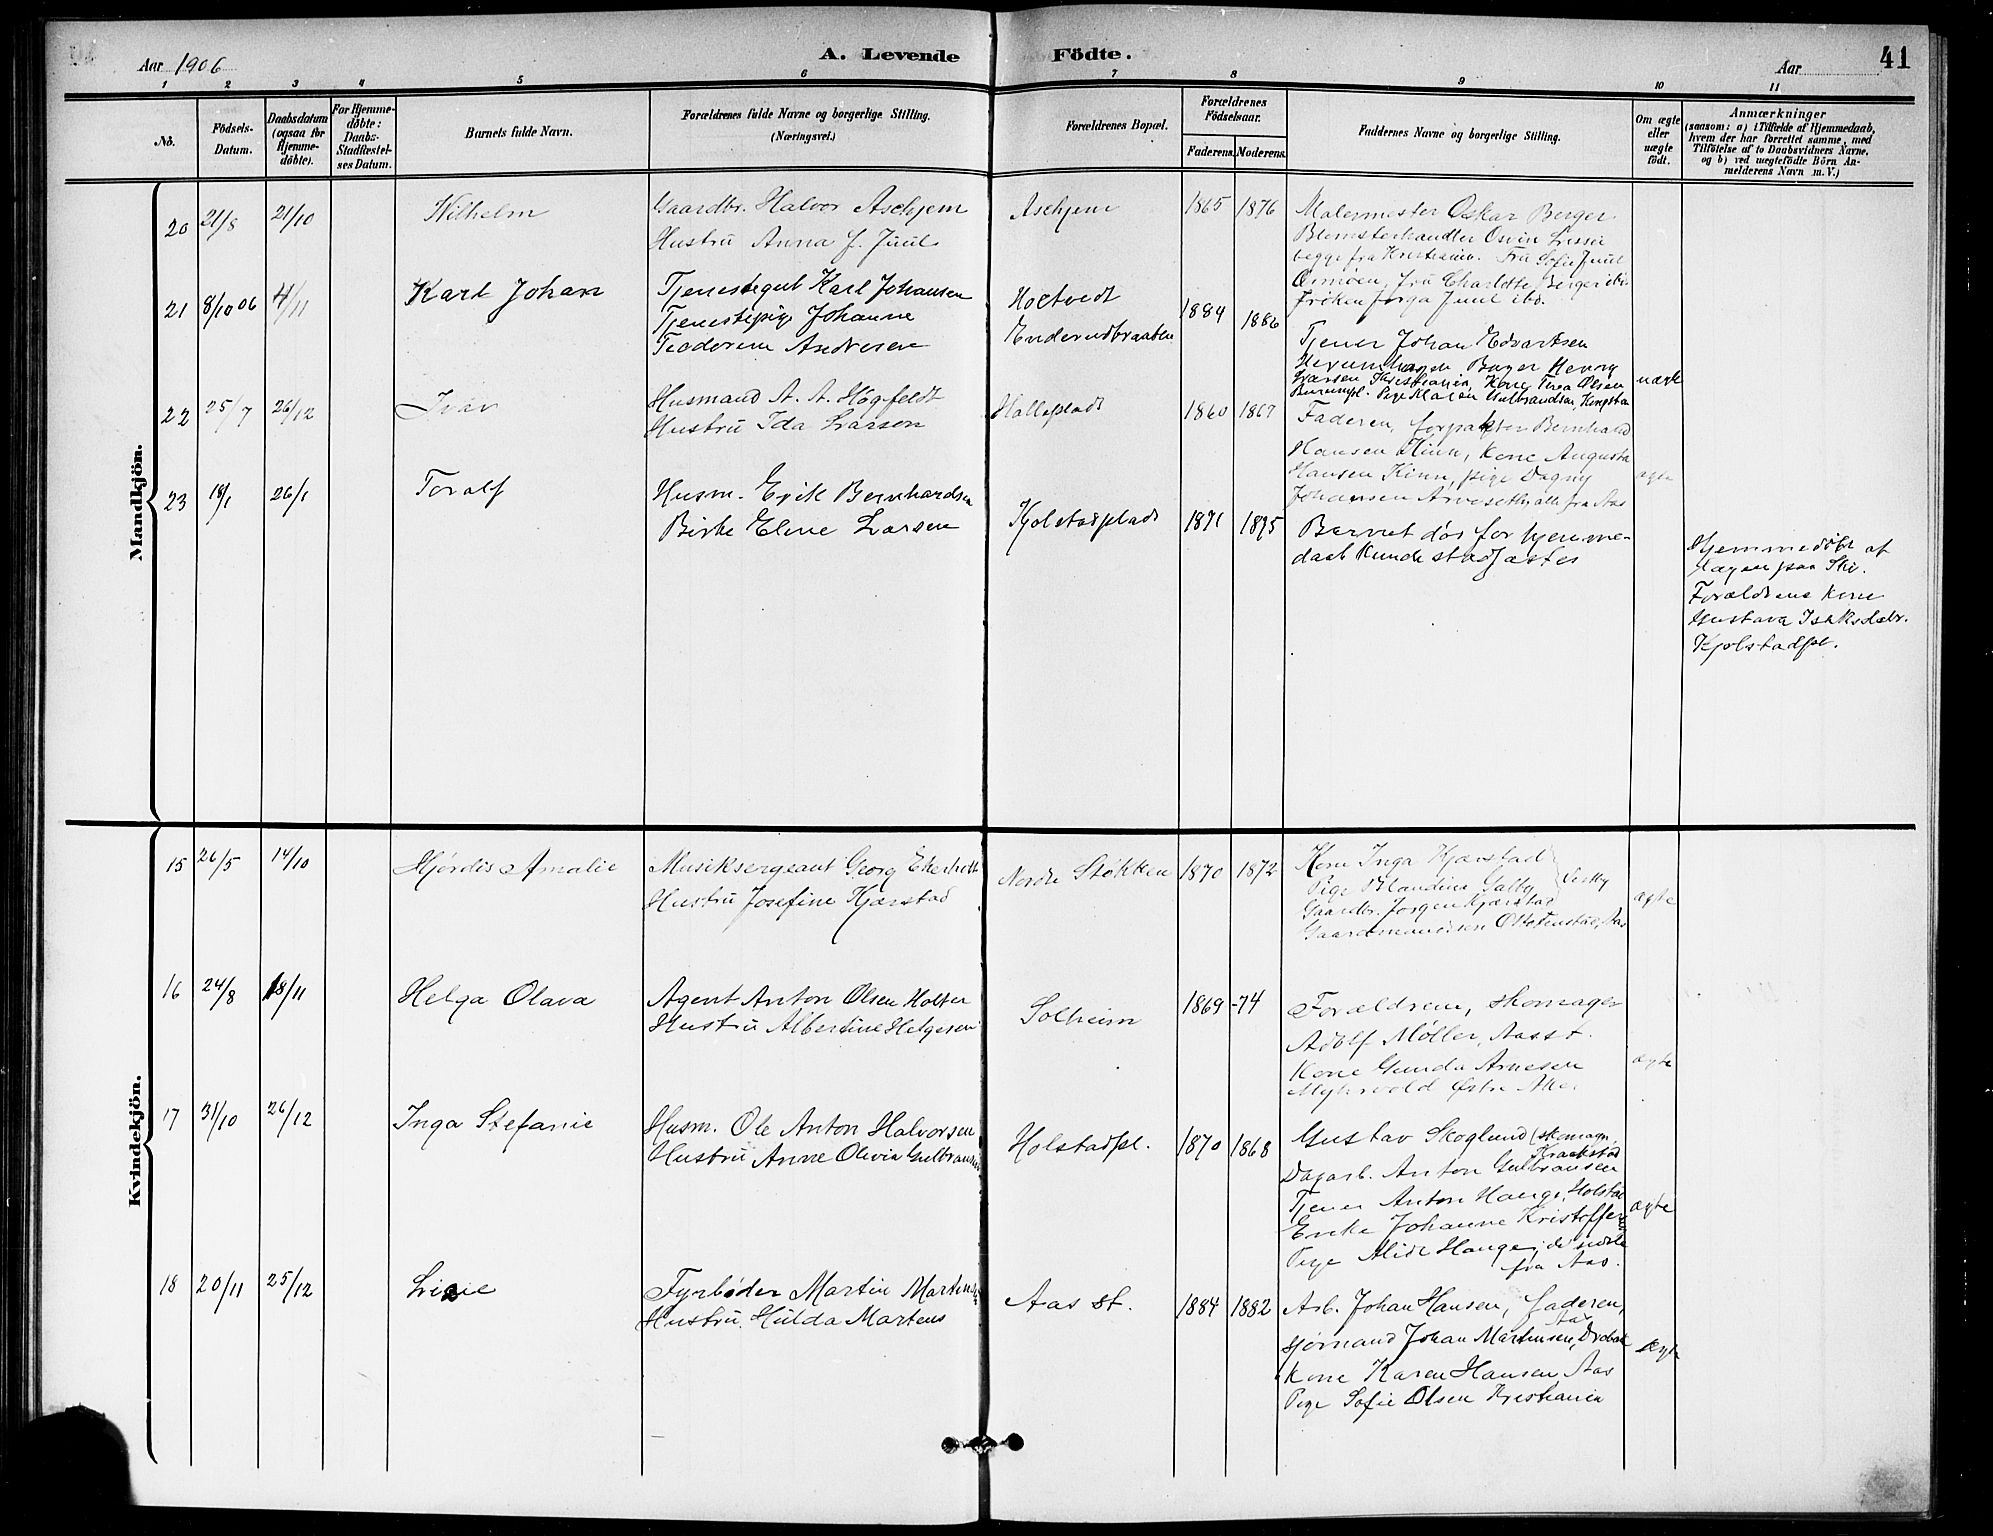 Aar 1906
A. Levende Födte.
Aar
41
1 2 3 4 5 6 7 8 9 10 11
No.
Födsels-Datum.
Daabsdatum (ogsaa for Hjemme-döbte).
For Hjemme-döbte: Daabs-Stadfæstel-ses Datum.
Barnets fulde Navn.
Forældrenes fulde Navne og borgerlige Stilling. (Næringsvei.)
Forældrenes Bopæl.
Forældrenes Födselsaar.
Faderens. Moderens.
Faddernes Navne og borgerlige Stilling.
Om ægte eller uægte födt.
Anmærkninger
(saasom: a) i Tilfælde af Hjemmedaab,
hvem der har forrettet samme, med
Tilföielse af to Daabsvidners Navne,
og b) ved uegtefödte Börn An-
melderens Navn m.V.)
Mandkjön.
20 21/8 21/10 Wilhelm
Gaardbr. Halvor Aschjem
Hustru Anna J. Juul
Aschjem 1865 1876
Malermester Oskar Berger
Blomsterhandler Osvin
begge fra Kristiania. Fru Sofie Juul
Fru Charlotte Berger
Frøken Juul ibd.
21 8/10 06 4/11 Karl Johan
Tjenestegut Karl Johansen
Tjenestepige Johanne
Teodorine Andresen
Holtvedt
1884 1886
Tjener Johan Edvartsen
Bager Henry
Larsen Kristiania, Kone Thea Olsen
Pige Klara Gulbrandsen,
uægte
22 25/7 26/12 Ivar
Husmand A. A. Høgfeldt
Hustru Ida Larsen
Holleplads 1860 1867
Faderen, forpakter Bernhard
Hansen Kinn, Kone Augusta
Hansen Kinn, pige Dagny
Johansen alle fra Aas
ægte
23 18/1 26/1 Toralf
Husm. Erik Bernhardsen
Birke Eline Larsen
Kjolstadplads 1871 1895
Barnet døs for hjemme-
daab kunde stadfæstes
Hjemmedøbt af
Lægen paa Ski.
Forældrene kone
Gustava Isaksdatr.
Kjolstadpl.
Kvindekjön.
15 26/5 14/10 Hjørdis Amalie
Musiksergeant Georg Ekeholt
Hustru Josefine Kjærstad
Nordre Støkken 1870 1872
Kone Inga Kjærstad
Pige Blandine Galby Vestby
Gaardbr. Jørgen Kjærstad
Gaardmandssøn Otto Finstad, Aas
ægte
16 24/8 18/11 Helga Olava
Agent Anton Olsen Holter
Hustru Albertine Helgesen
Solheim 1869 -74
Forældrene, skomager
Adolf Møller, Aas st.
Kone Gunda Arnesen
Myhrvold Østre Aker
ægte
17 31/10 26/12 Inga Stefanie
Husm. Ole Anton Halvorsen
Hustru Anne Olivia Gulbransen
Holstadpl. 1870 1868
Gustav Skoglund (skomagr.
Kraakstad
Dagarb. Anton Gulbransen
Tjener Anton Hauge, Holstad
Enke Johanne Kristoffersen
Pige Alide Hauge, de sidste
fra Aas.
ægte
18 20/11 25/12
Fyrbøder Martin Martinsen
Hustru Hulda Martens
Aas st. 1884 1882
Arb. Johan Hansen, faderen,
Aas
Sjømand Johan Martinsen, Drøbak
Kone Karen Hansen, Aas
Pige Sofie Olsen Kristiania
ægte